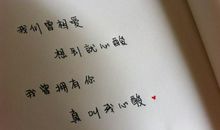 我们曾相爱
想到就心酸
我曾拥有你
真叫我心酸